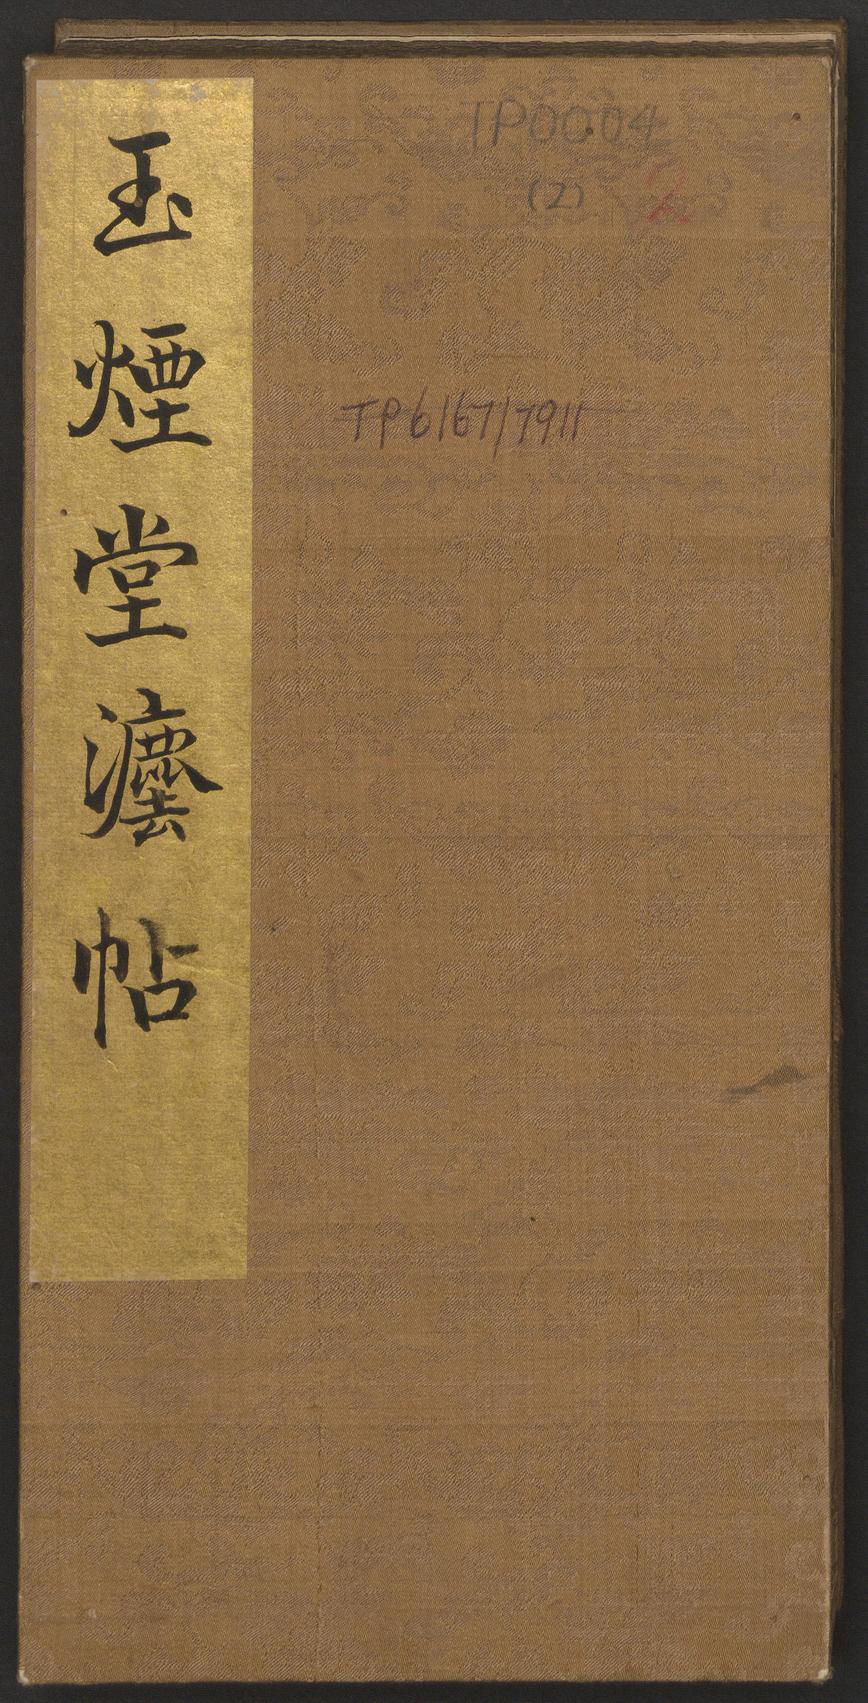 玉煙堂灋帖
TP0004
(2) 2
TP6167/7911